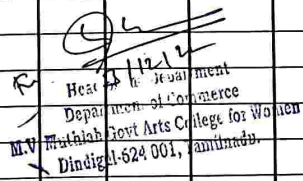 Head of the Department
Department of Commerce
M.V. Muthiah Govt Arts College for Women
Dindigul-624 001, Tamilnadu.